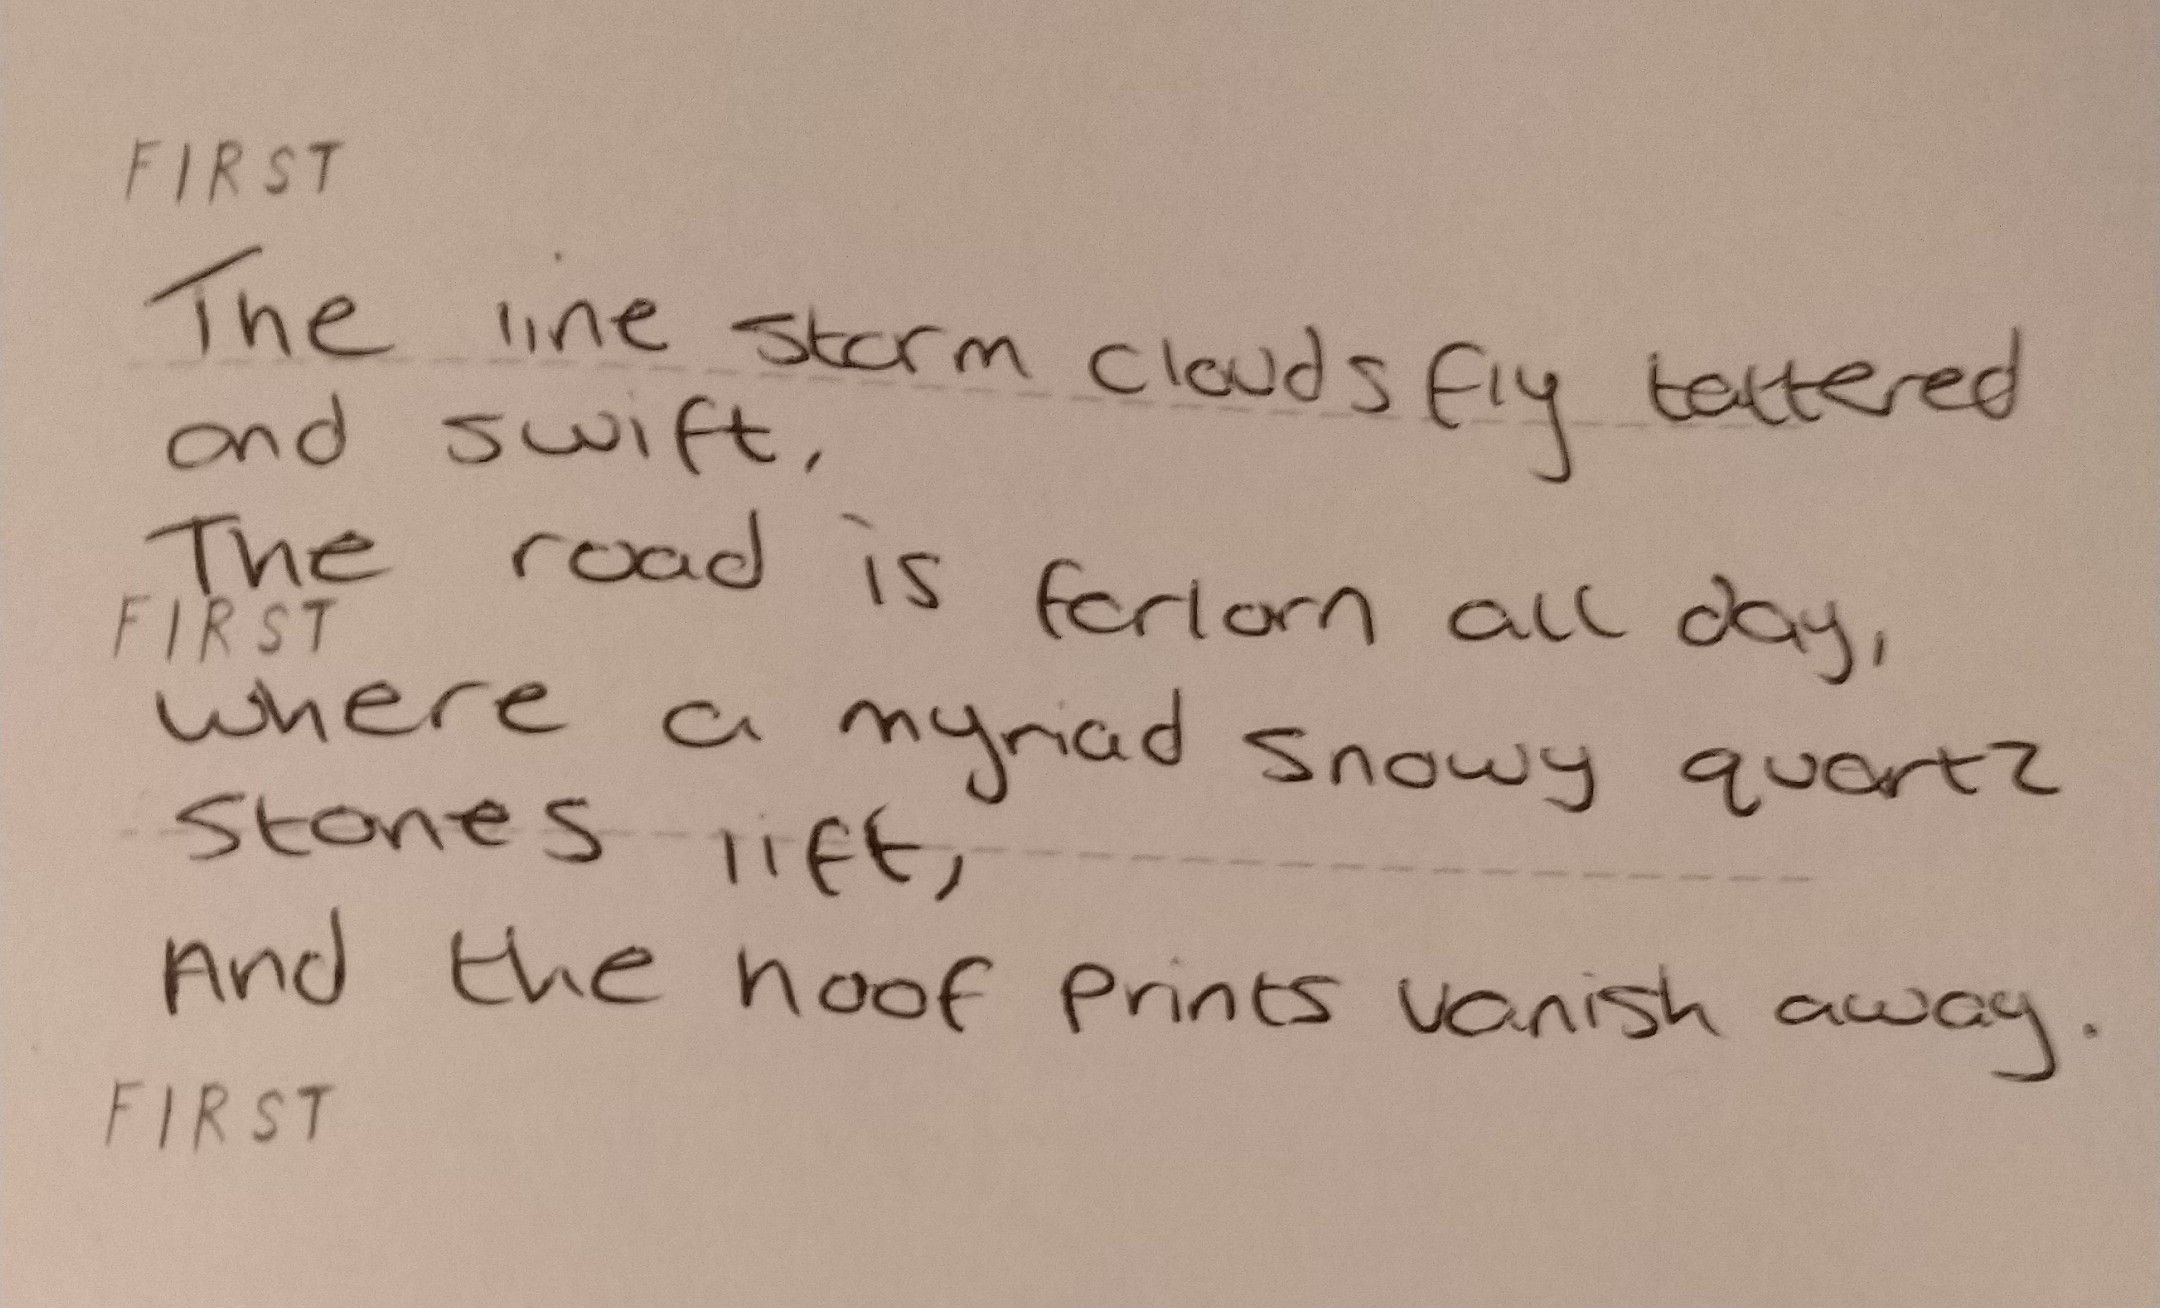 FIRST
The line storm clouds fly tattered
and swift,
The road is forlorn all day,
FIRST
where a myriad snowy quartz
stones lift,
And the hoof prints vanish away.
FIRST